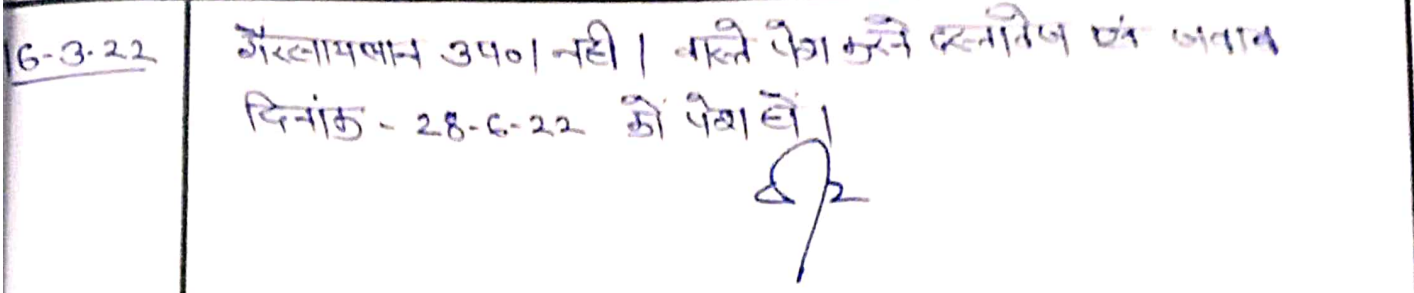 16-3-22
गैरसायलान उप०। नही। वास्ते पेश करने दस्तावेज एवं जवाब
दिनांक - 28-6-22 को पेश हो।